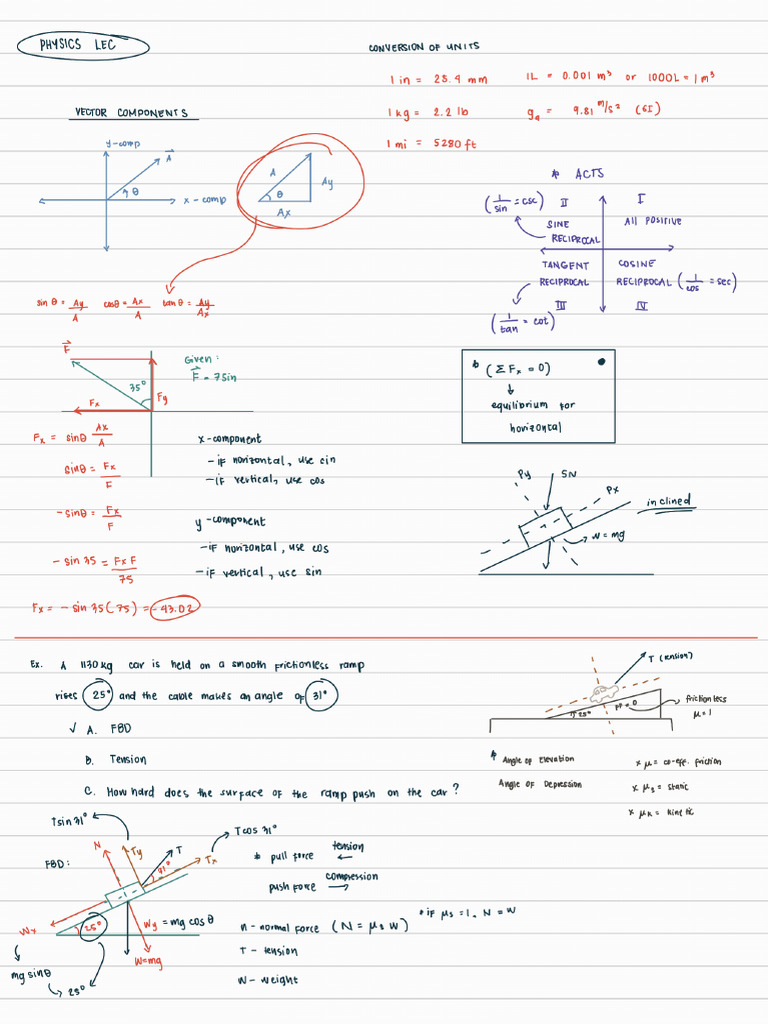 PHYSICS LEC
CONVERSION OF UNITS
1 in = 25.4 mm
1L = 0.001 m³ or 1000L = 1 m³
1 kg = 2.2 lb
9.81 m/s² (SI)
1 mi = 5280 ft
VECTOR COMPONENTS
y-comp
A
θ
x - comp
A
Ay
θ
Ax
sin θ = Ay/A cosθ = Ax/A tan θ = Ay/Ax
* ACTS
(1/sin = csc) II
I
SINE
RECIPROCAL
All POSITIVE
TANGENT
RECIPROCAL
COSINE
RECIPROCAL (1/cos = sec)
III
IV
(1/tan = cot)
F
35°
Fx
Fy
Given:
F = 75in
Fx = sinθ Ax/A
sinθ = Fx/F
-sinθ = Fx/F
-sin 35 = Fx F/75
Fx = - sin 35(75) = -43.02
x-component
-if horizontal, use sin
-if vertical, use cos
y-component
-if horizontal, use cos
-if vertical, use sin
(ΣFx = 0)
equilibrium for
horizontal
Py
5N
Px
inclined
W = mg
Ex. A 1130 kg car is held on a smooth frictionless ramp
rises 25° and the cable makes an angle of 31°
√ A. FBD
B. Tension
C. How hard does the surface of the ramp push on the car?
T (tension)
25°
FF = 0
frictionless
μ = 1
* Angle of Elevation
Angle of Depression
x μ = co-eff. friction
x μs = static
x μk = kinetic
Tsin31°
FBD:
N
Ty
T
31°
Tx
Tcos 31°
Wx
25°
Wy = mg cos θ
W=mg
mg sinθ
25°
* pull force
tension
push force
compression
n - normal force (N = μs W)
*if μs = 1, N = W
T - tension
W - weight